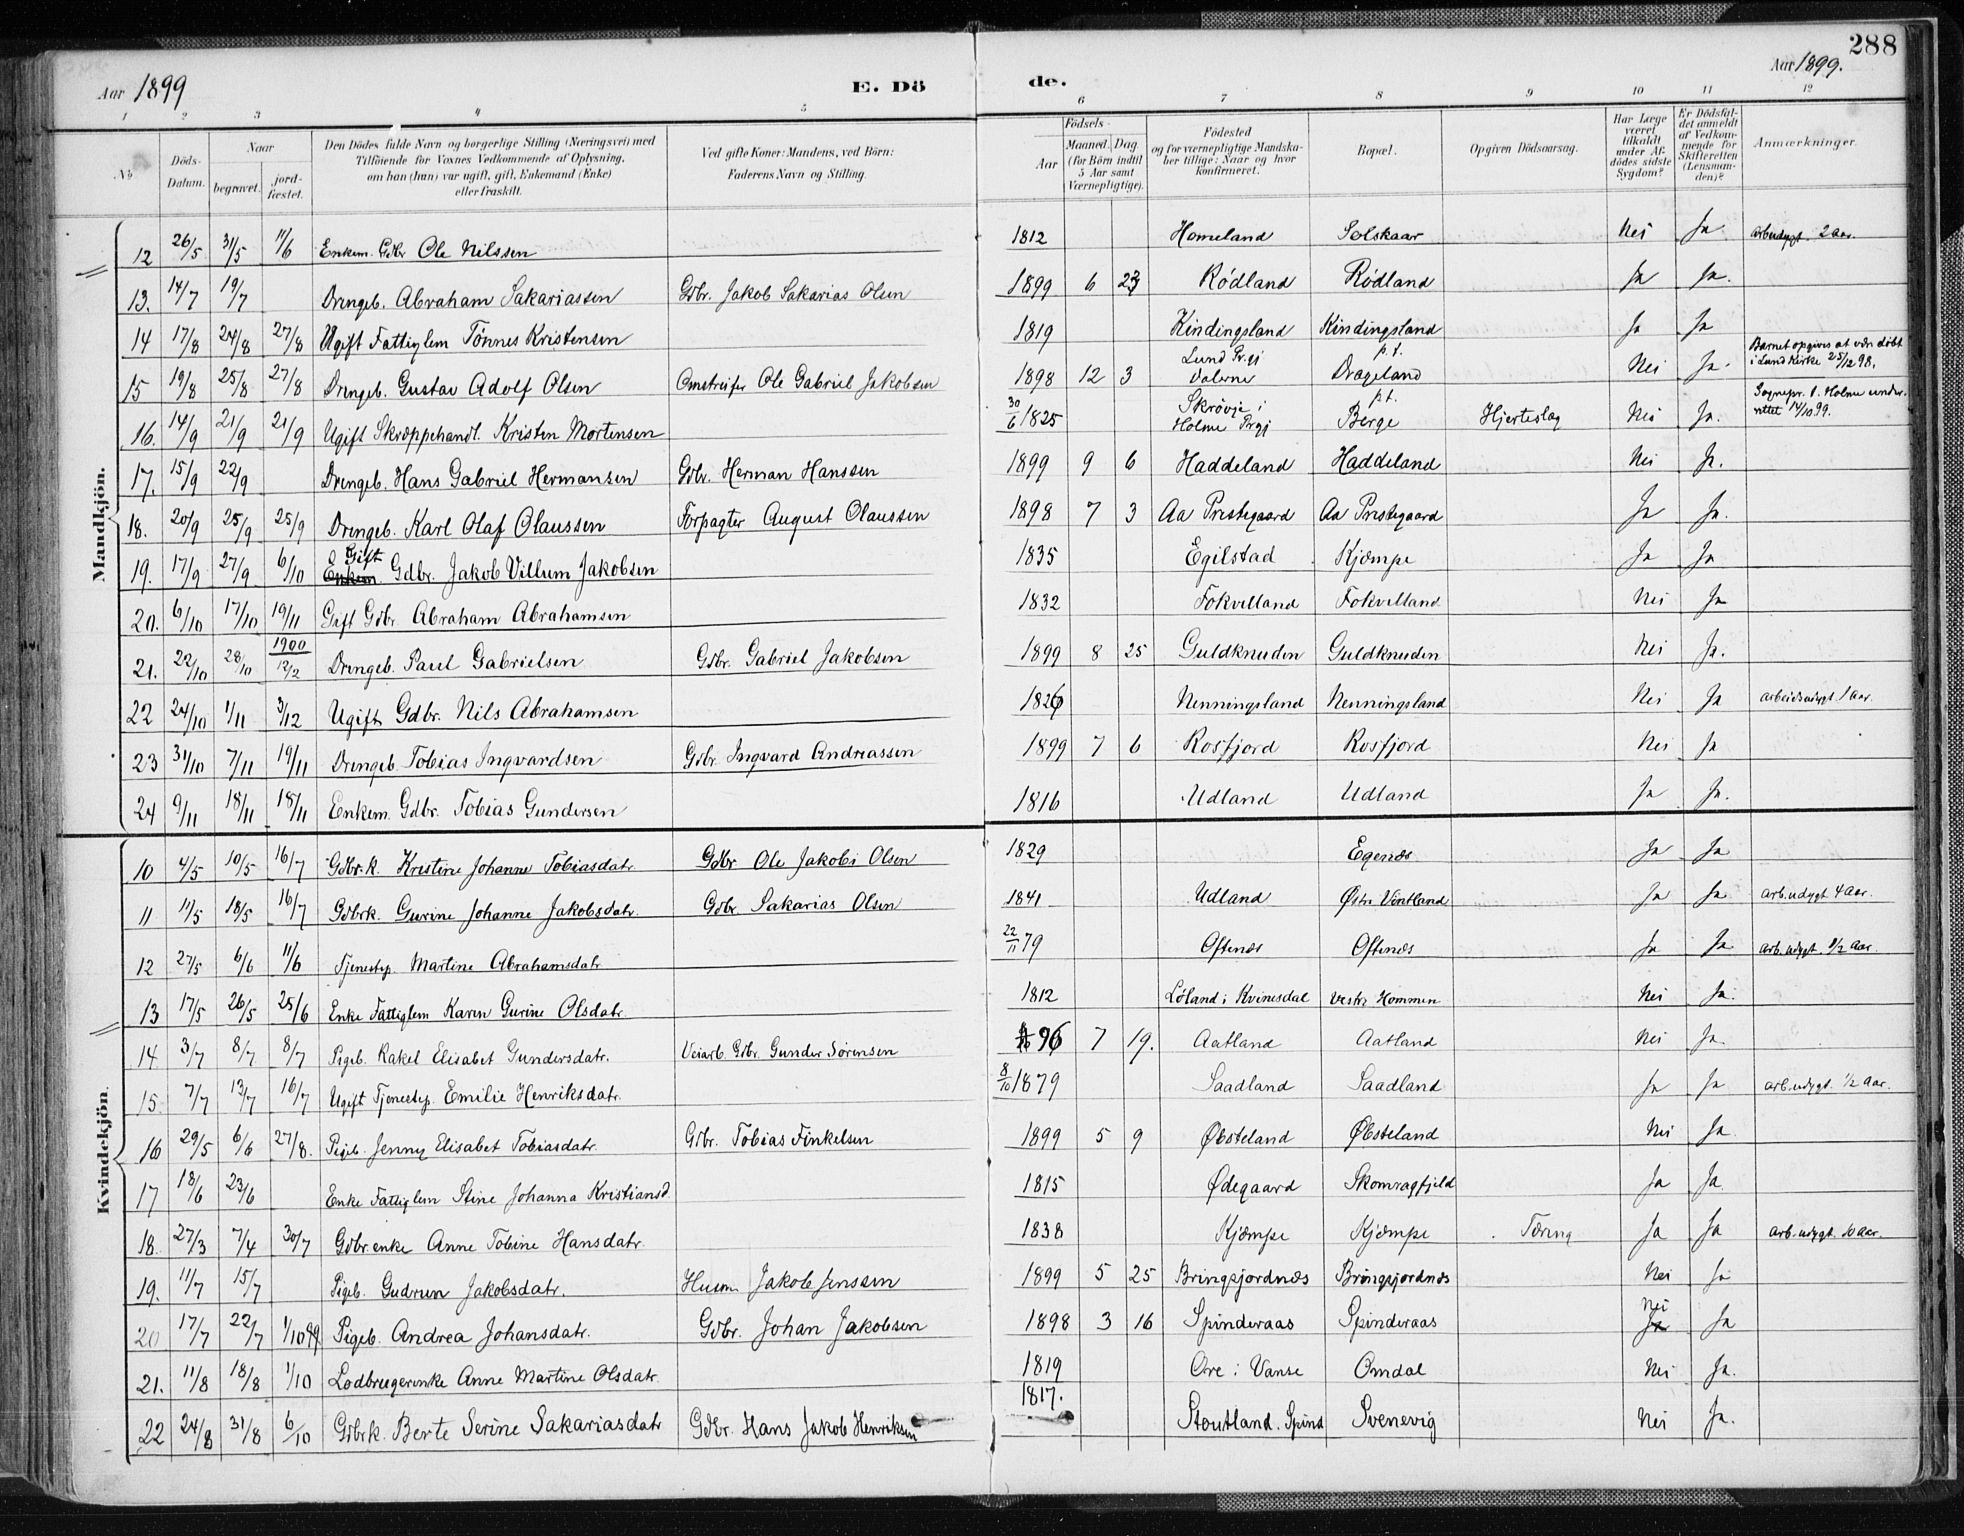 288
Aar 1899 E. Dö de. Aar 1899.
1 2 3 4 5 6 7 8 9 10 11 12
No Döds-Datum. Naar begravet. jord-fæstet. Den Dödes fulde Navn og borgerlige Stilling (Næringsvei) med Tilföiende for Voxnes Vedkommende af Oplysning, om han (hun) var ugift, gift, Enkemand (Enke) eller fraskilt. Ved gifte Koner: Mandens, ved Börn: Faderens Navn og Stilling. Födsels- Aar Maaned. Dag (for Börn indtil 5 Aar samt Værnepligtige). Födested og for værnepligtige Mandskaber tillige: Naar og hvor konfirmeret. Bopæl. Opgiven Dödsaarsag. Har Læge været tilkaldt under Afdödes sidste Sygdom? Er Dödsfaldet anmeldt af Vedkommende for Skifteretten (Lensmanden)? Anmærkninger.
Mandkjön.
12 26/5 31/5 11/6 Enkem. Gdbr Ole Nilssen 1812 Homeland Solskaar Nei Ja arbudygt. 2 aar.
13. 14/7 19/7 Drengeb. Abraham Sakariassen Gdbr. Jakob Sakarias Olsen 1899 6 23 Rødland Rødland Ja Ja.
14 17/8 24/8 27/8 Ugift Fattiglem Tønnes Kristensen 1819 Kindingsland Kindingsland Ja Ja
15 19/8 25/8 27/8 Drengeb. Gustav Adolf Olsen Omstreifer Ole Gabriel Jakobsen 1898 12 3 Lund Prgj p.t. Drageland Nei Ja. Barnet opgives at være døbt i Lund Kirke 25/12 98.
16. 14/9 21/9 21/9 Ugift Skræppehandl. Kristen Mortensen 30/6 1825 Skrøvje i Holme Prgj p.t. Berge Hjerteslag Nei Ja. Sognepr. t. Holme underrettet 14/10 99.
17. 15/9 22/9 Drengeb. Hans Gabriel Hermansen Gdbr. Herman Hanssen 1899 9 6 Haddeland Haddeland Nei Ja.
18. 20/9 25/9 25/9 Drengeb. Karl Olaf Olaussen Forpagter August Olaussen 1898 7 3 Aa Prestegaard Aa Prestegaard Ja Ja.
19. 17/9 27/9 6/10 Enkem Gift Gdbr. Jakob Villum Jakobsen 1835 Egilstad Kjæmpe Ja Ja
20. 6/10 17/10 19/11 Gift Gdbr Abraham Abrahamsen 1832 Fokvelland Fokvelland Nei Ja
21. 22/10 28/10 1900 12/2 Drengeb. Paul Gabrielsen Gdbr. Gabriel Jakobsen 1899 8 25 Guldknuden Guldknuden Nei Ja.
22 24/10 1/11 3/12 Ugift Gdbr. Nils Abrahamsen 1826 Nenningsland Nenningsland Nei Ja arbeidsudygt. 1 aar.
23 31/10 7/11 19/11 Drengeb. Tobias Ingvardsen Gdbr. Ingvard Andreassen 1899 7 6 Rosfjord Rosfjord Nei Ja
24 9/11 18/11 18/11 Enkem. Gdbr. Tobias Gundersen 1816 Udland Udland Ja Ja.
Kvindekjön.
10 4/5 10/5 16/7 Gdbr.k. Kristine Johanne Tobiasdatr. Gdbr Ole Jakobi Olsen 1829 Egenæs Ja Ja
11 11/5 18/5 16/7 Gdbrk. Gurine Johanne Jakobsdatr. Gdbr. Sakarias Olsen 1841 Udland Østr. Vintland Ja Ja arb.udygt 4 aar.
12 27/5 6/6 11/6 Tjenestep. Martine Abrahamsdatr 22/11 79 Oftenæs Oftenæs Ja Ja arb. udygt. 1/2 aar.
13 17/5 26/5 25/6 Enke Fattiglem Karen Gurine Olsdatr. 1812 Løland i Kvinesdal Vestr. Hommen Nei Ja.
14. 3/7 8/7 8/7 Pigeb. Rakel Elisabet Gundersdatr. Veiarb. Gdbr. Gunder Sørensen 96 7 19. Aatland Aatland Nei Ja.
15. 7/7 13/7 16/7 Ugift Tjenestep. Emilie Henriksdatr. 8/10 1879 Saadland Saadland Ja Ja arb.udygt. 1/2 aar.
16 29/5 6/6 27/8. Pigeb. Jenny Elisabet Tobiasdatr. Gdbr. Tobias Finkelsen 1899 5 9 Øbsteland Øbsteland Nei Ja.
17 18/6 23/6 Enke Fattiglem Stine Johanna Kristiansd. 1815 Ødegaard Skomragfjeld Ja Ja
18. 27/3 7/4 30/7 Gdbr.enke Anne Tobine Hansdatr. 1838 Kjæmpe Kjæmpe Tæring Ja Ja arb.udygt. 10 aar.
19. 11/7 15/7 Pigeb. Gudrun Jakobsdatr. Husm. Jakob Jenssen 1899 5 25 Bringsjordnæs Bringsjordnæs Nei Ja
20 17/7 22/7 1/10 99 Pigeb. Andrea Johansdatr. Gdbr. Johan Jakobsen 1898 3 16 Spinderaas Spinderaas nei Ja Ja
21. 11/8 18/8 1/10 Lodbrugerenke Anne Martine Olsdatr. 1819 Ore i Vanse Omdal Nei Ja.
22 24/8 31/8 6/10 Gdbrk. Berte Serine Sakariasdatr Gdbr. Hans Jakob Henriksen 1817. Stoutland. Spind Svenevig Nei Ja.